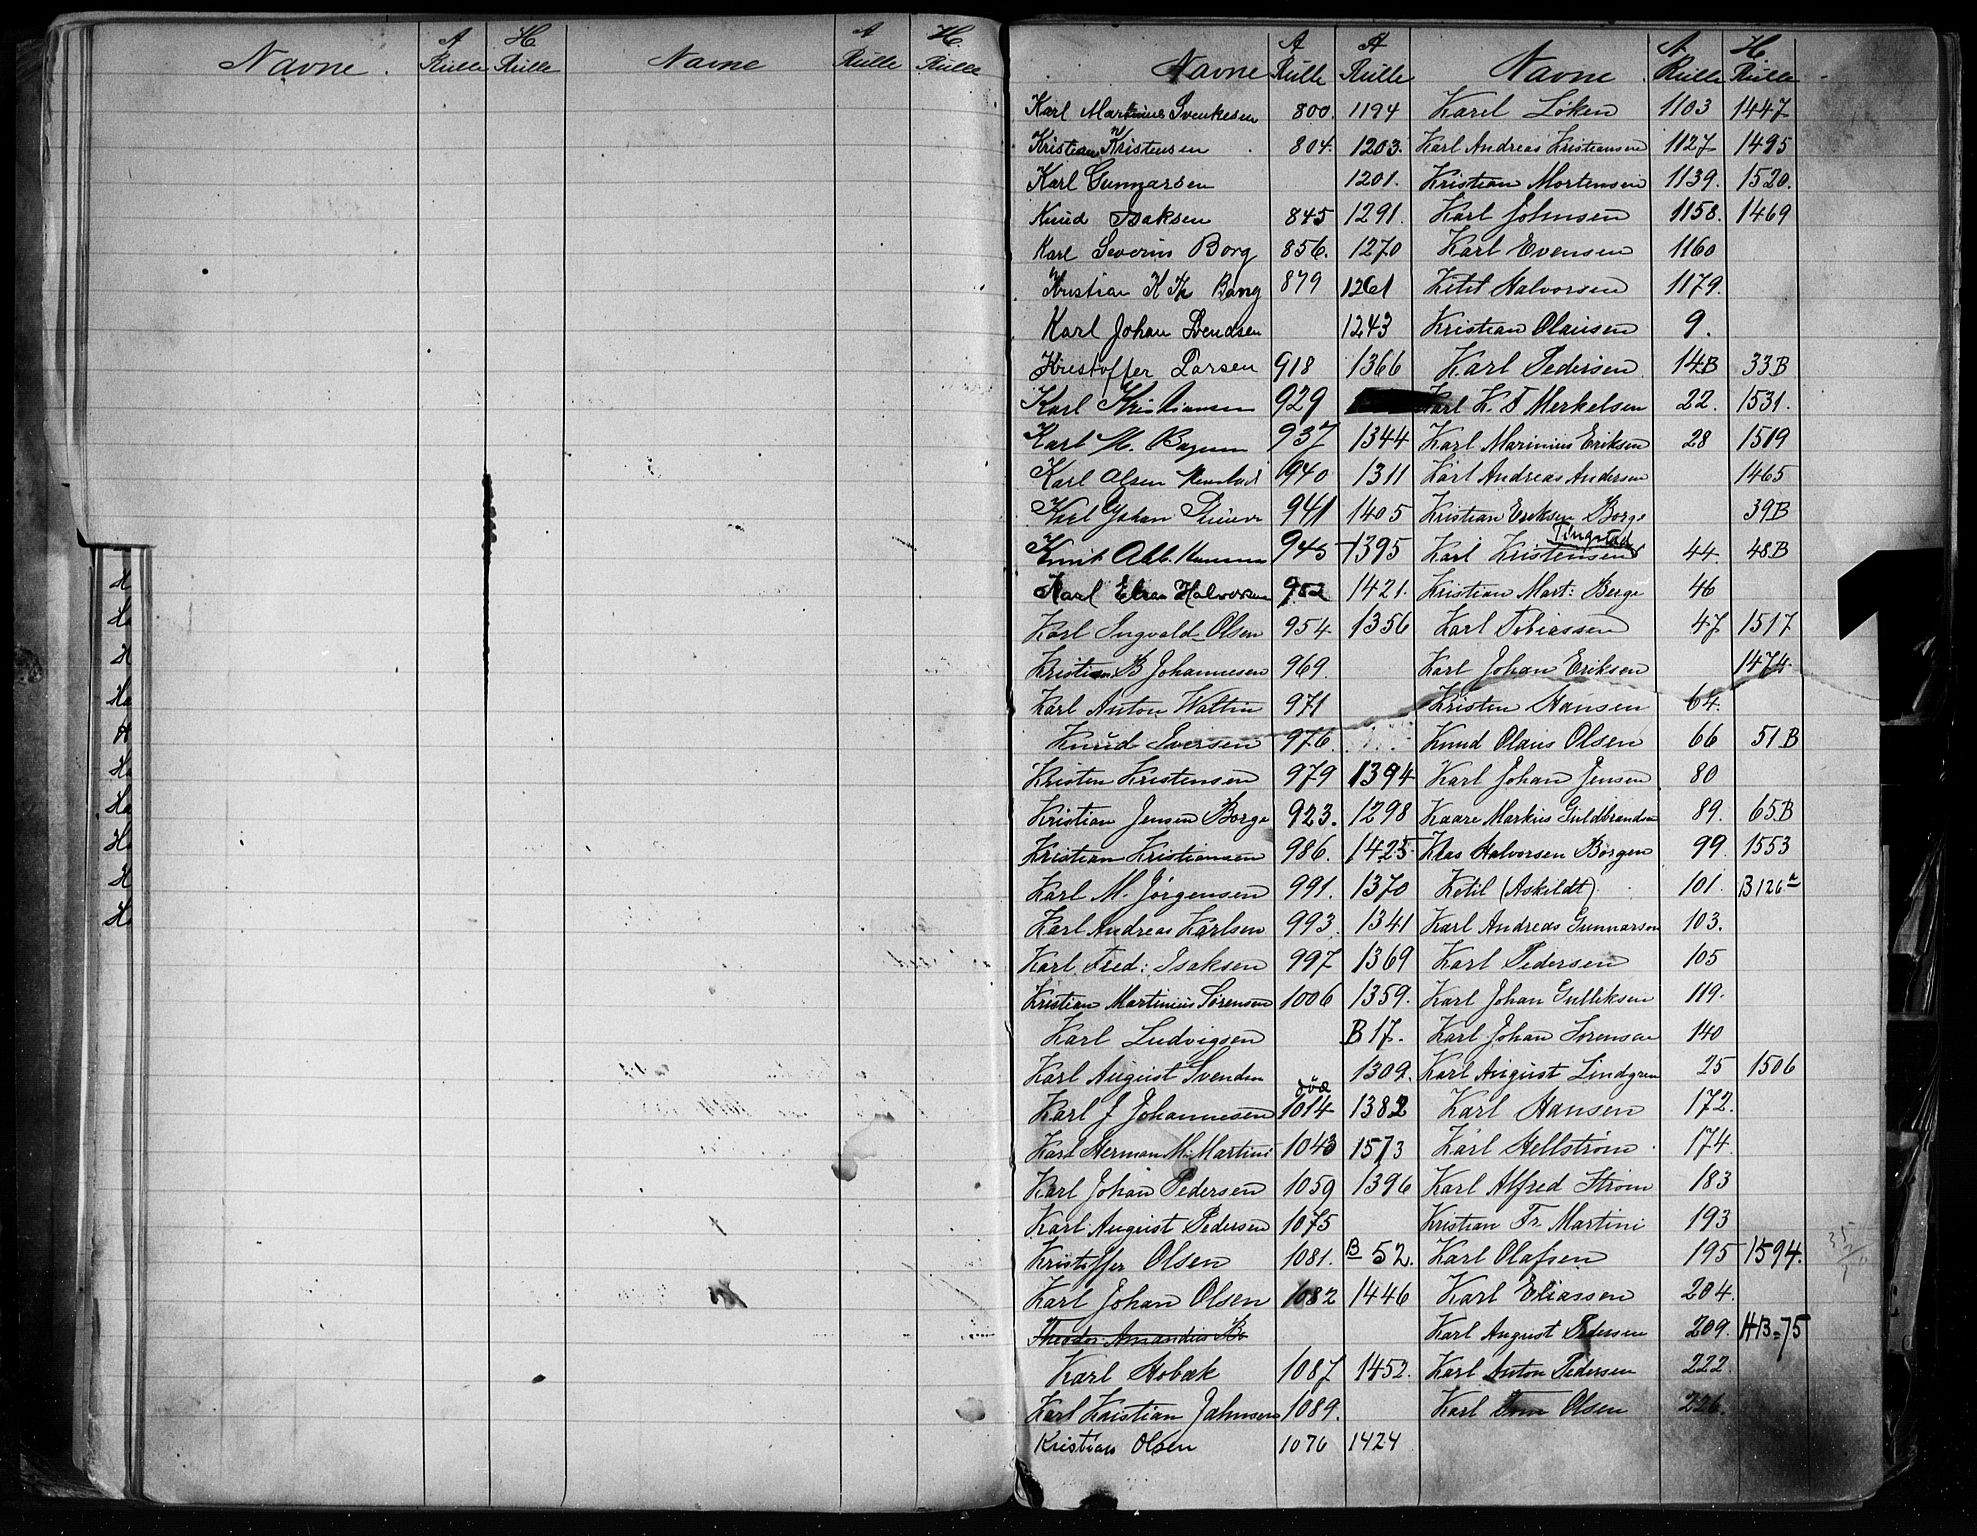 Navne. A Rulle H Rulle Navne A Rulle H. Rulle
H
Ha
H
Ha
H
Ha
Ha
Ha
H
Ha
Navne A Rulle A Rulle Navne A Rulle H Rulle
Karl Martinius Svenkesen 800. 1194 Karel Løken 1103 1447
Kristian Kristensen 804. 1203. Karl Andreas Kristiansen 1127 1495
Karl Gunnarsen 1201. Kristian Mortensen 1139. 1520.
Knud Isaksen 845 1291. Karl Johnsen 1158. 1469
Karl Severin Borg 856. 1270 Karl Evensen 1160
Kristian K Th Bang 879 1261 Ketil Halvorsen 1179.
Karl Johan Svendsen 1243 Kristian Olausen 9.
Kristoffer Larsen 918 1366 Karl Pedersen 14B 33B
Karl Kristiansen 929 Karl K. T Merkelsen 22. 1531.
Karl M. 937 1344 Karl Marinius Eriksen 28 1519
Karl Olsen 940 1311 Karl Andreas Andersen 1465
Karl Johan 941 1405 Kristian Eriksen Borge 39B
Knut Alb. 945 1395 Karl Kristensen Tingstad 44. 48B
Karl Halvorsen 952 1421. Kristian Mart: Berge 46
Karl Ingvald Olsen 954 1356 Karl Tobiassen 47 1517
Kristian B Johannesen 969. Karl Johan Eriksen 1474
Karl Anton Wattin 971 Kristen Hansen 64.
Knud Iversen 976. Knud Olaus Olsen 66 51B
Kristen Kristensen 979 1394 Karl Johan Jensen 80
Kristian Jensen Borge 923. 1298 Kaare Markus Guldbrandsen 89. 65B
Kristian Kristiansen 986. 1425 Klas Halvorsen Børgen 99. 1553
Karl M. Jørgensen 991. 1370 Ketil (Askildt) 101. B 126 a
Karl Andreas Karlsen 993. 1341 Karl Andreas Gunnarson 103.
Karl Fred: Isaksen 997 1369 Karl Pedersen 105
Kristian Martinius Sørensen 1006 1359. Karl Johan Gulliksen 119.
Karl Ludvigsen B 17. Karl Johan Sorensen 140
Karl August Svendsen 1309. Karl August Lindgren 25 1506
Karl J Johannesen død 1014 1382 Karl Hansen 172.
Karl Herman M. Martini 1043 1573 Karl Hellstrøm 174.
Karl Johan Pedersen 1059 1396 Karl Alfred Strøm 183
Karl August Pedersen 1075 Kristian Fr. Martini 193
Kristoffer Olsen 1081. B 52. Karl Olafsen 195 1594.
Karl Johan Olsen 1082 1446 Karl Eliassen 204.
Theodor Amandus B. Karl August Pedersen 209. HB=75
Karl Hobæk 1087 1452. Karl Anton Pedersen 222
Karl Kristian Jahnsen 1089. Karl Olsen 226.
Kristian Olsen 1076 1424